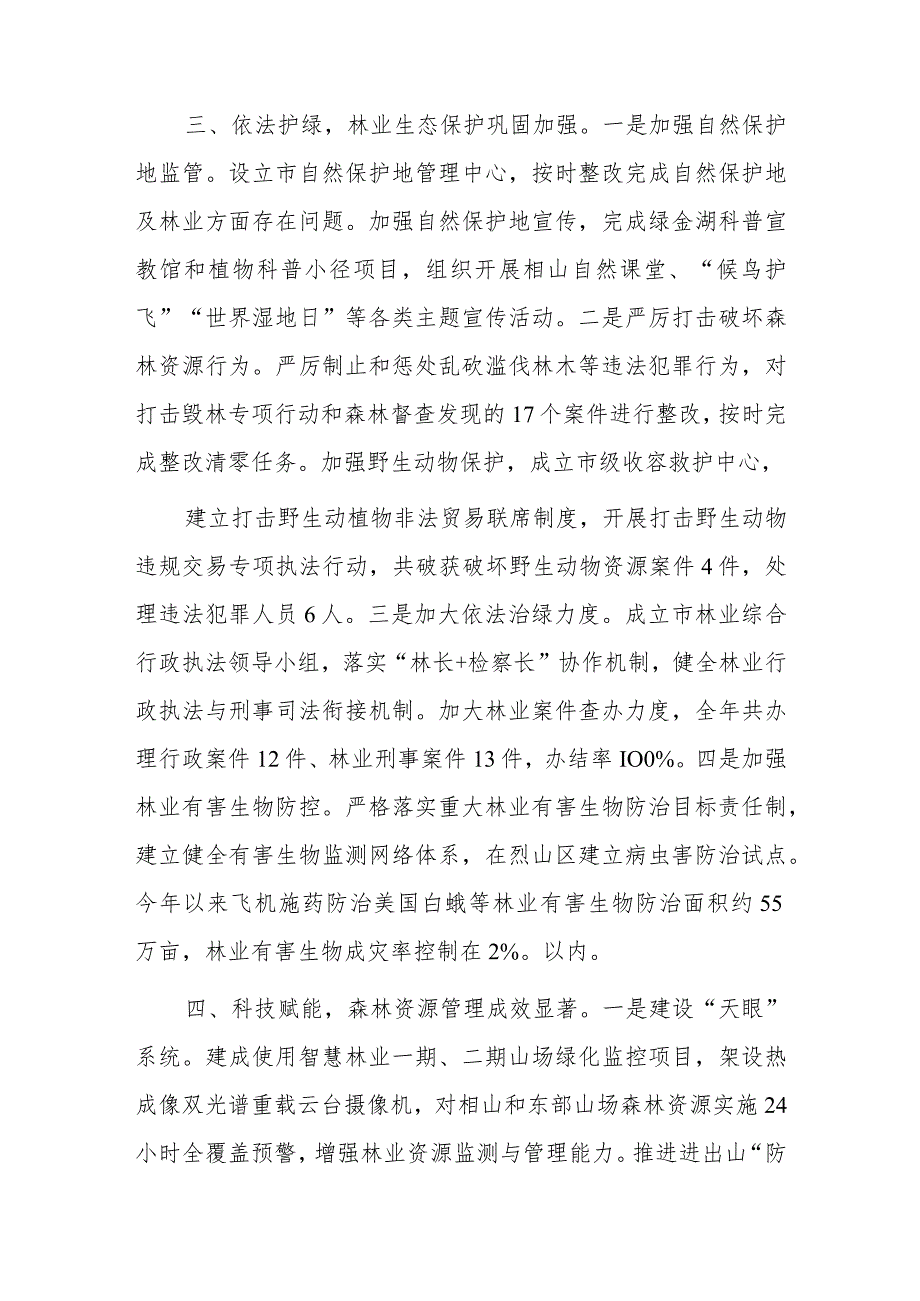 三、依法护绿，林业生态保护巩固加强。一是加强自然保护
地监管。设立市自然保护地管理中心，按时整改完成自然保护地
及林业方面存在问题。加强自然保护地宣传，完成绿金湖科普宣
教馆和植物科普小径项目，组织开展相山自然课堂、“候鸟护
飞”“世界湿地日”等各类主题宣传活动。二是严厉打击破坏森
林资源行为。严厉制止和惩处乱砍滥伐林木等违法犯罪行为，对
打击毁林专项行动和森林督查发现的 17 个案件进行整改，按时完
成整改清零任务。加强野生动物保护，成立市级收容救护中心，
建立打击野生动植物非法贸易联席制度，开展打击野生动物
违规交易专项执法行动，共破获破坏野生动物资源案件 4 件，处
理违法犯罪人员 6 人。三是加大依法治绿力度。成立市林业综合
行政执法领导小组，落实“林长+检察长”协作机制，健全林业行
政执法与刑事司法衔接机制。加大林业案件查办力度，全年共办
理行政案件 12 件、林业刑事案件 13 件，办结率 IO0%。四是加强
林业有害生物防控。严格落实重大林业有害生物防治目标责任制，
建立健全有害生物监测网络体系，在烈山区建立病虫害防治试点。
今年以来飞机施药防治美国白蛾等林业有害生物防治面积约 55
万亩，林业有害生物成灾率控制在 2%。以内。
四、科技赋能，森林资源管理成效显著。一是建设“天眼”
系统。建成使用智慧林业一期、二期山场绿化监控项目，架设热
成像双光谱重载云台摄像机，对相山和东部山场森林资源实施 24
小时全覆盖预警，增强林业资源监测与管理能力。推进进出山“防